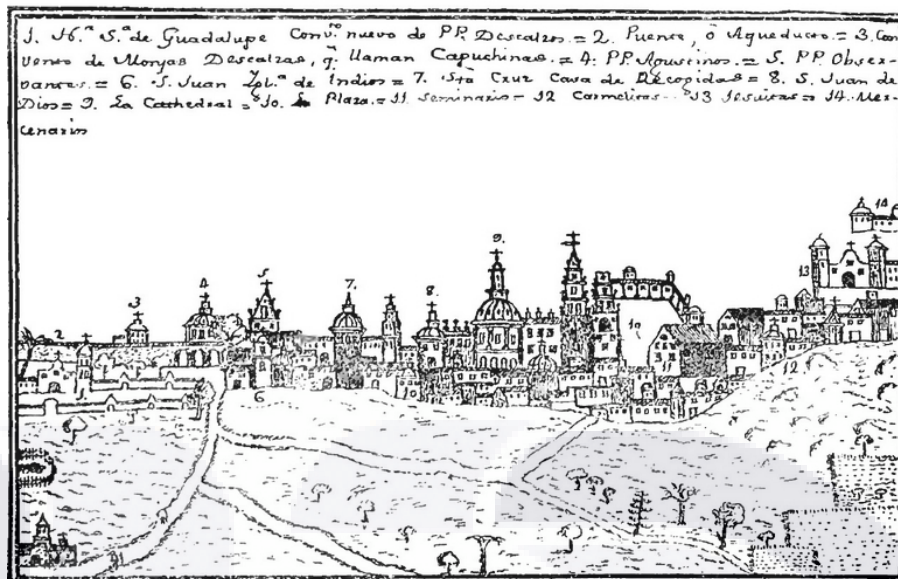 1. N.ª S.ª de Guadalupe Conv.to nuevo de PP. Descalzos. = 2. Puente, ò Aqueducto. = 3. Con
vento de Monjas Descalzas, q.e llaman Capuchinas. = 4. PP. Agustinos. = 5. PP. Obser-
vantes. = 6. S. Juan de Indios = 7. Sta Cruz Casa de Recogidas = 8. S. Juan de
Dios = 9. La Cathedral = 10. La Plaza. = 11. Seminario = 12 Carmelitas = 13 Jesuitas = 14. Mer-
cenarios
14
9.
13
5
4
7.
3
8.
2
10
11
12
6